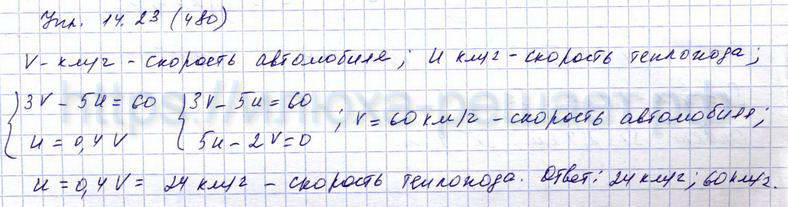 Упр. 14.23 (480)
V - км/ч - скорость автомобиля; U км/ч - скорость теплохода;
{3V - 5U = 60 {3V - 5U = 60
U = 0,4V 5U - 2V = 0 ; V = 60 км/ч - скорость автомобиля;
U = 0,4V = 24 км/ч - скорость теплохода. Ответ: 24 км/ч; 60 км/ч.